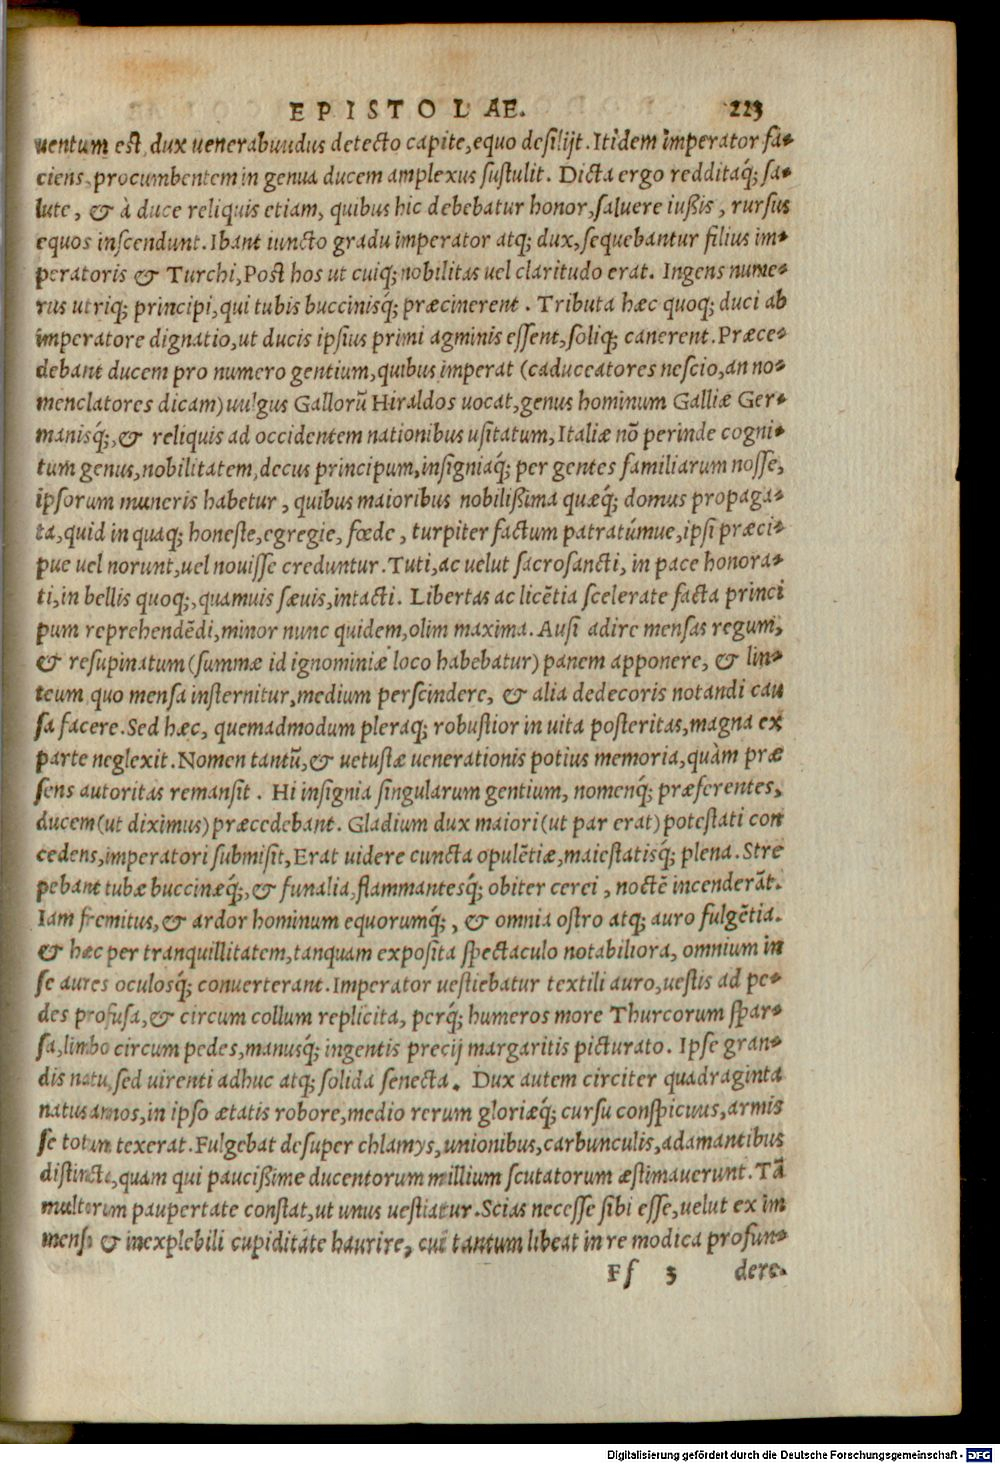 EPISTOLAE. 223
uentum est, dux uenerabundus detecto capite, equo desilijt. Itidem imperator fa-
ciens, procumbentem in genua ducem amplexus sustulit. Dicta ergo redditaq́; sa-
lute, & à duce reliquis etiam, quibus hic debebatur honor, saluere iußis, rursus
equos inscendunt. Ibant iuncto gradu imperator atq; dux, sequebantur filius im-
peratoris & Turchi, Post hos ut cuiq; nobilitas uel claritudo erat. Ingens nume-
rus utriq; principi, qui tubis buccinisq́; præcinerent. Tributa hæc quoq; duci ab
imperatore dignatio, ut ducis ipsius primi agminis essent, soliq; canerent. Præce-
debant ducem pro numero gentium, quibus imperat (caduceatores nescio, an no-
menclatores dicam) uulgus Gallorũ Hiraldos uocat, genus hominum Galliæ Ger-
manisq́;, & reliquis ad occidentem nationibus usitatum, Italiæ nõ perinde cogni-
tum genus, nobilitatem, decus principum, insigniaq́; per gentes familiarum nosse,
ipsorum muneris habetur, quibus maioribus nobilißima quæq; domus propaga-
ta, quid in quaq; honeste, egregie, fœde, turpiter factum patratúmue, ipsi præci-
pue uel norunt, uel nouisse creduntur. Tuti, ac uelut sacrosancti, in pace honora-
ti, in bellis quoq;, quamuis sæuis, intacti. Libertas ac licẽtia scelerate facta princi
pum reprehendẽdi, minor nunc quidem, olim maxima. Ausi adire mensas regum,
& resupinatum (summæ id ignominiæ loco habebatur) panem apponere, & lin-
teum quo mensa insternitur, medium perscindere, & alia dedecoris notandi cau
sa facere. Sed hæc, quemadmodum pleraq; robustior in uita posteritas, magna ex
parte neglexit. Nomen tantũ, & uetustæ uenerationis potius memoria, quàm præ
sens autoritas remansit. Hi insignia singularum gentium, nomenq́; præferentes,
ducem (ut diximus) præcedebant. Gladium dux maiori (ut par erat) potestati con
cedens, imperatori submisit, Erat uidere cuncta opulẽtiæ, maiestatisq́; plena. Stre
pebant tubæ buccinæq́;, & funalia, flammantesq́; obiter cerei, noctẽ incenderãt.
Iam fremitus, & ardor hominum equorumq́;, & omnia ostro atq; auro fulgẽtia.
& hæc per tranquillitatem, tanquam exposita spectaculo notabiliora, omnium in
se aures oculosq́; conuerterant. Imperator uestiebatur textili auro, uestis ad pe-
des profusa, & circum collum replicita, perq́; humeros more Thurcorum spar-
sa, limbo circum pedes, manusq́; ingentis precij margaritis picturato. Ipse gran-
dis natu, sed uirenti adhuc atq; solida senecta. Dux autem circiter quadraginta
natus annos, in ipso ætatis robore, medio rerum gloriæq́; cursu conspicuus, armis
se totum texerat. Fulgebat desuper chlamys, unionibus, carbunculis, adamantibus
distincta, quam qui paucißime ducentorum millium scutatorum æstimauerunt. Tã
multorum paupertate constat, ut unus uestiatur. Scias necesse sibi esse, uelut ex im
mensi & inexplebili cupiditate haurire, cui tantum libeat in re modica profun-
Ff 3 dere.
Digitalisierung gefördert durch die Deutsche Forschungsgemeinschaft - DFG